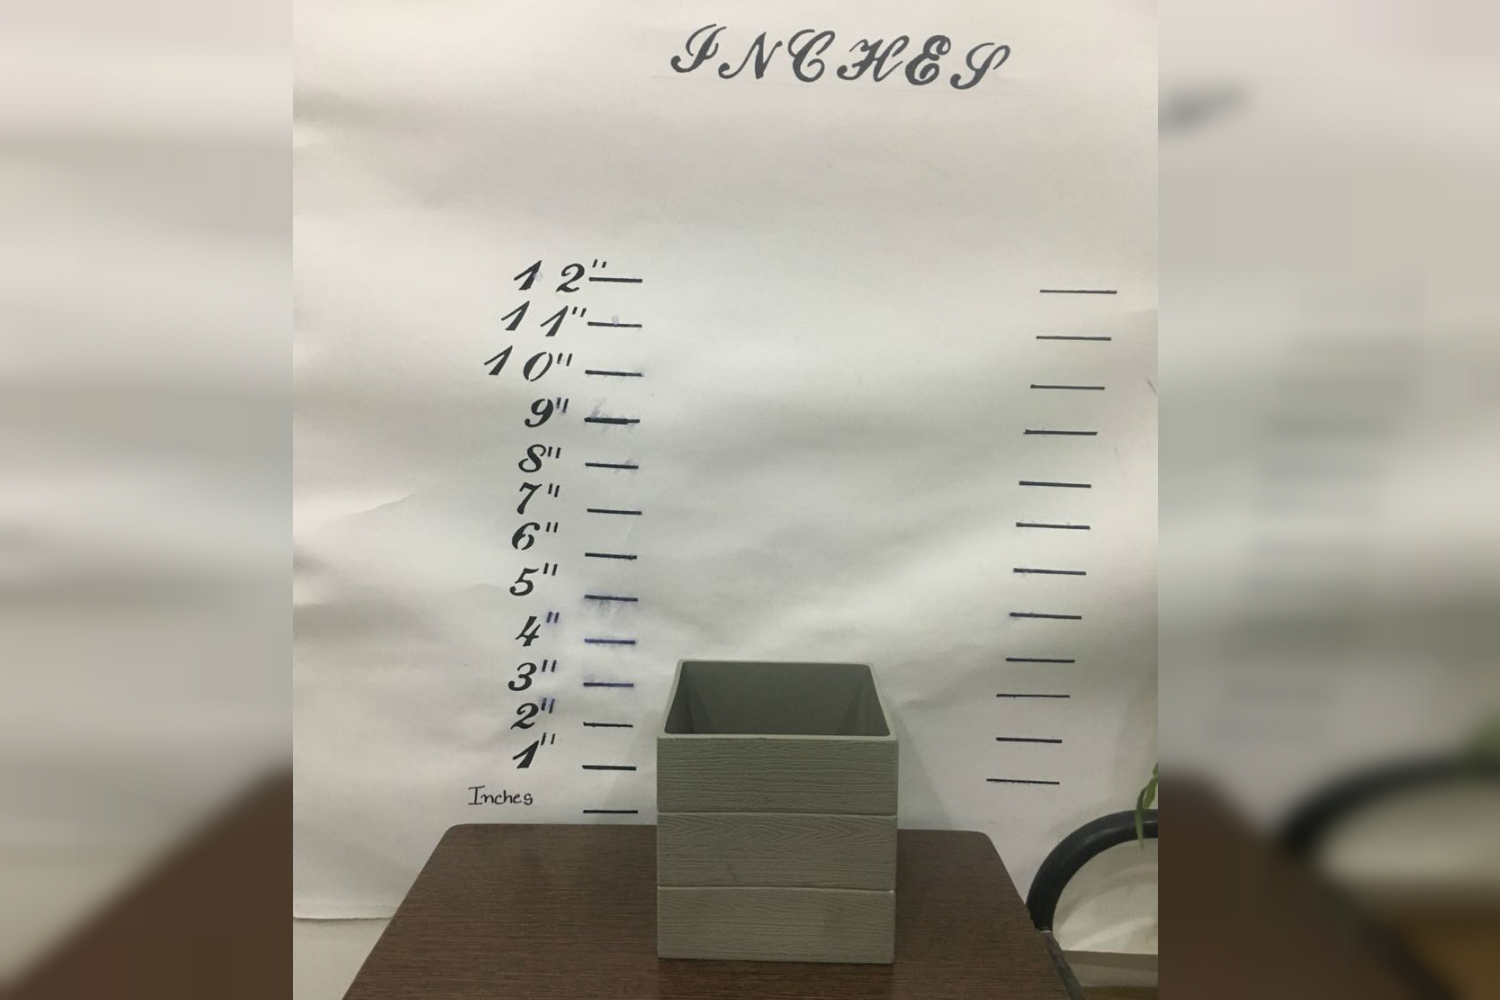 INCHES
12"
11"
10"
9"
8"
7"
6"
5"
4"
3"
2"
1"
Inches